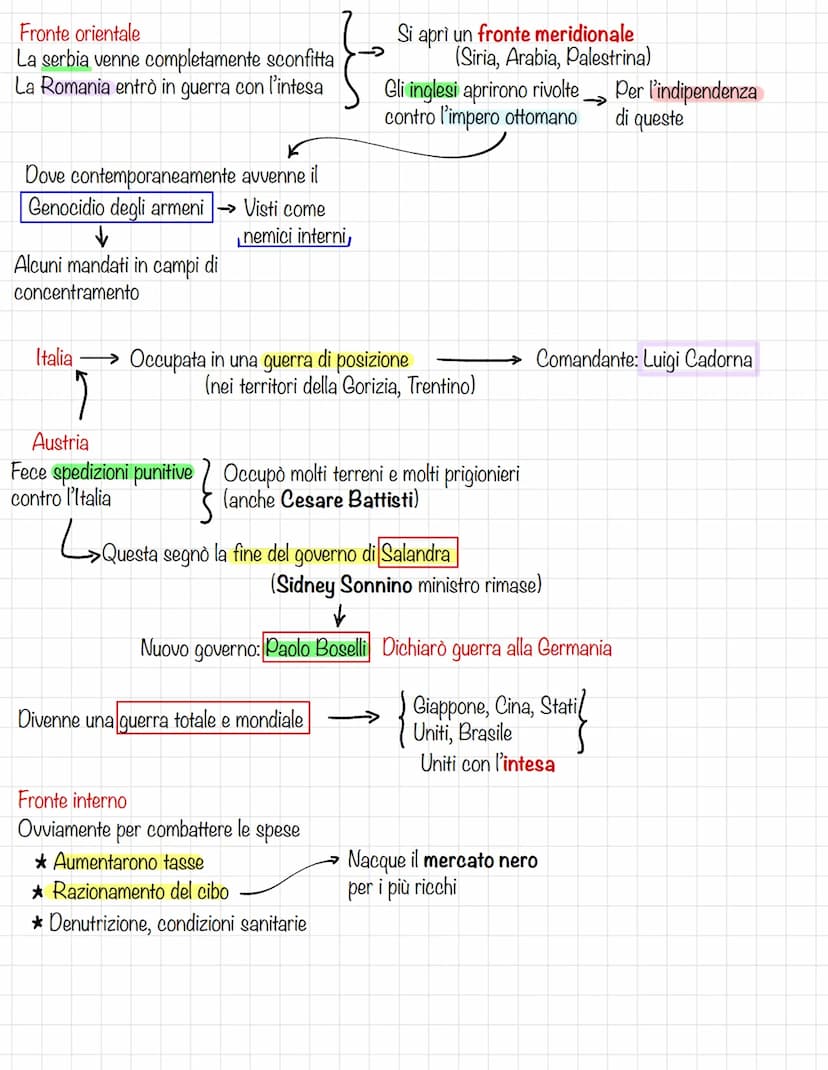 Fronte orientale
La serbia venne completamente sconfitta
La Romania entrò in guerra con l'intesa
Si aprì un fronte meridionale
(Siria, Arabia, Palestrina)
Gli inglesi aprirono rivolte
contro l'impero ottomano
Per l'indipendenza
di queste
Dove contemporaneamente avvenne il
Genocidio degli armeni
Visti come
nemici interni
Alcuni mandati in campi di
concentramento
Italia
Occupata in una guerra di posizione
(nei territori della Gorizia, Trentino)
Comandante: Luigi Cadorna
Austria
Fece spedizioni punitive
contro l'Italia
Occupò molti terreni e molti prigionieri
(anche Cesare Battisti)
Questa segnò la fine del governo di Salandra
(Sidney Sonnino ministro rimase)
Nuovo governo: Paolo Boselli Dichiarò guerra alla Germania
Divenne una guerra totale e mondiale
Giappone, Cina, Stati
Uniti, Brasile
Uniti con l'intesa
Fronte interno
Ovviamente per combattere le spese
★ Aumentarono tasse
★ Razionamento del cibo
★ Denutrizione, condizioni sanitarie
Nacque il mercato nero
per i più ricchi